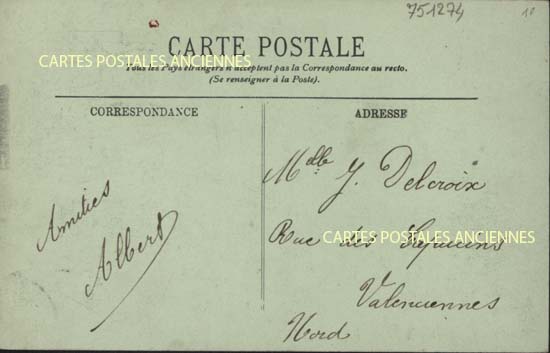 751274
10
CARTE POSTALE
CARTES POSTALES ANCIENNES
Tous les Pays étrangers n'acceptent pas la Correspondance au recto.
(Se renseigner à la Poste).
CORRESPONDANCE
ADRESSE
Amitiés
Albert
Mdlle J. Delcroix
CARTES POSTALES ANCIENNES
Rue des
Valenciennes
Nord